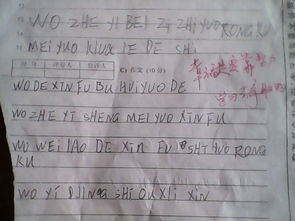 WO ZHE YI BEI Zi ZHiYUO RONG KU
MEI YUO KUA IE DE SHi
C) 作文 (10 分)
幸福是要靠努力
WO DE XIN FU BU HUiYUO DE
WO ZHE YI SHENG MEI YUO XIN FU
WO WEI LAO DE XIN FU SHI YUO RONG
KU
WO YI DJING SHI QU XII XIN